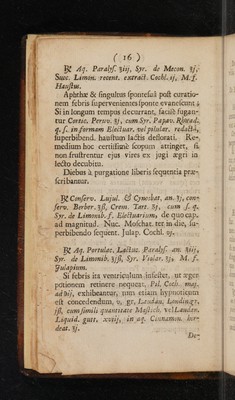 ( 16 )
℞ Aq. Paralyſ. ʒiij, Syr. de Mecon. ʒj,
Succ. Limon. recent. extract. Cochl. ij, M. f.
Hauſtus.
Aphthæ & ſingultus ſpontefuâ poſt curatio-
nem febris ſupervenientes ſponte evaneſcunt ;
Si in longum tempus decurrant, facile fugan-
tur Cortic. Peruv. ℥j, cum Syr. Papav. Rhœad.
q. ſ. in formam Electuar. vel pilular. redactâ,
ſuperbibend. hauſtum lactis deflorati. Re-
medium hoc certiſſimè ſcopum attinget, ſi
non fruſtrentur ejus vires ex jugi ægri in
lecto decubitu.
Diebus à purgatione liberis ſequentia præ-
ſcribantur.
℞ Conſerv. Lujul. & Cynosbat. an. ℥j, con-
ſerv. Berber. ℥ſſ, Crem. Tart. ʒj, cum ſ. q.
Syr. de Limonib. f. Electuarium, de quo cap.
ad magnitud. Nuc. Moſchat. ter in die, ſu-
perbibendo ſequent. Julap. Cochl. vj.
℞ Aq. Portulac. Lactuc. Paralyſ. an. ℥iij,
Syr. de Limonib. ℥jſſ, Syr. Violar. ℥j. M. f.
Julapium.
Si febris ita ventriculum infeſtet, ut æger
potionem retinere nequeat, Pil. Coch. maj.
ad ℈ij, exhibeantur, tum etiam hypnoticum
eſt concedendum, v. gr. Laudan. Londin. gr.
jſſ, cum ſimili quantitate Maſtich. vel Laudan.
Liquid. gutt. xviij, in aq. Cinnamon. hor-
deat. ℥j.
De-